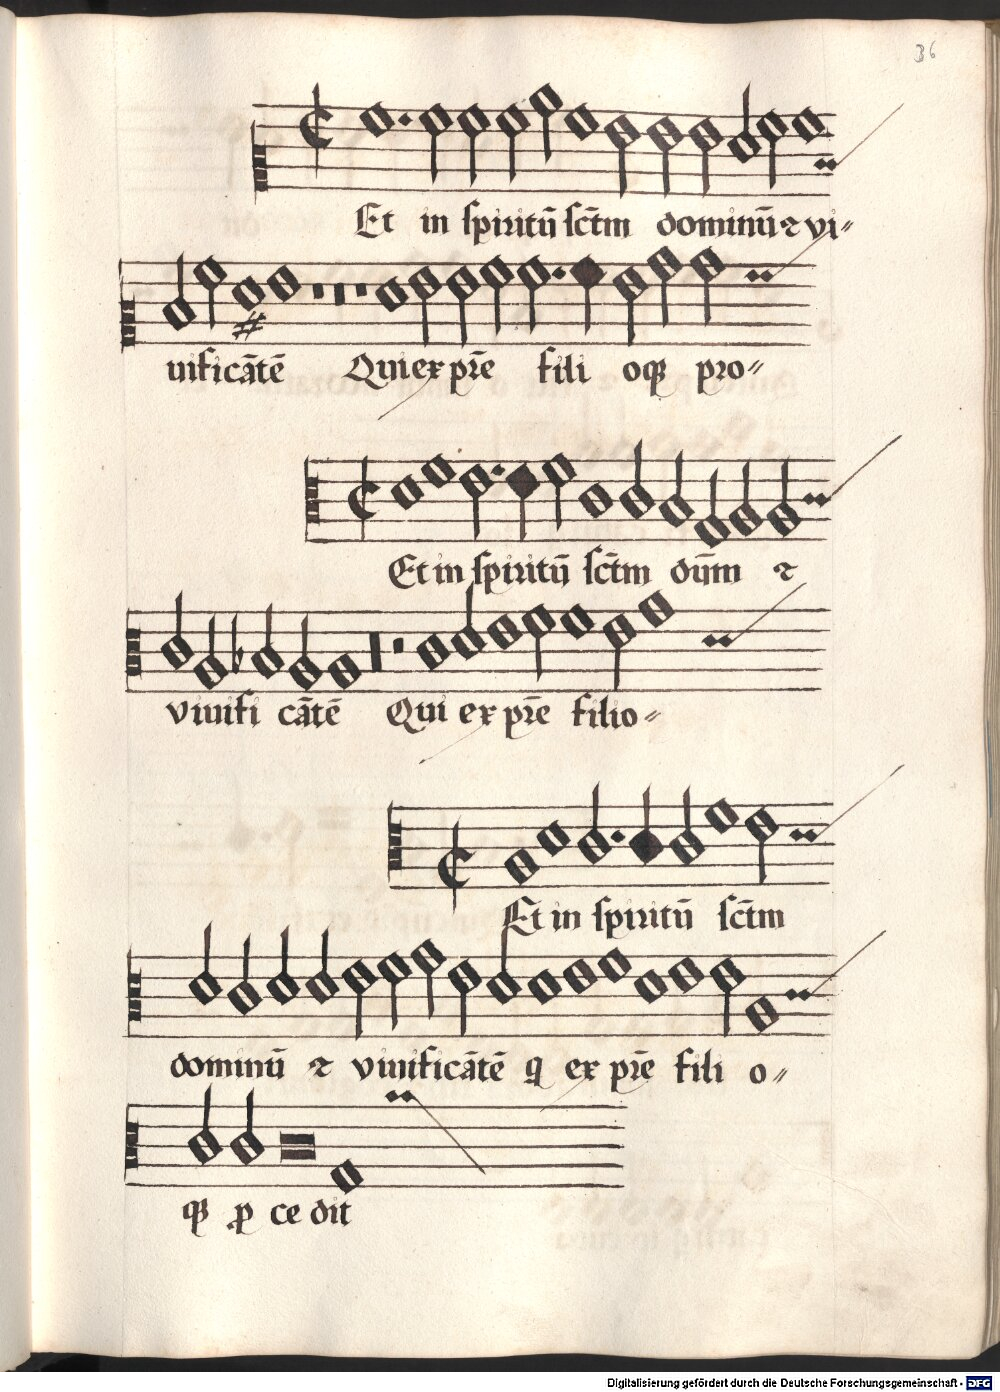 36
Et in spiritū sc̄tm dominū ⁊ vi-
uificātē Qui ex pr̄e fili oq̄ pro-
Et in spiritū sc̄tm dn̄m ⁊
viuifi cātē Qui ex pr̄e filio-
Et in spiritū sc̄tm
dominū ⁊ viuificātē q ex pr̄e fili o-
q̄ ꝓ ce dit
Digitalisierung gefördert durch die Deutsche Forschungsgemeinschaft - DFG